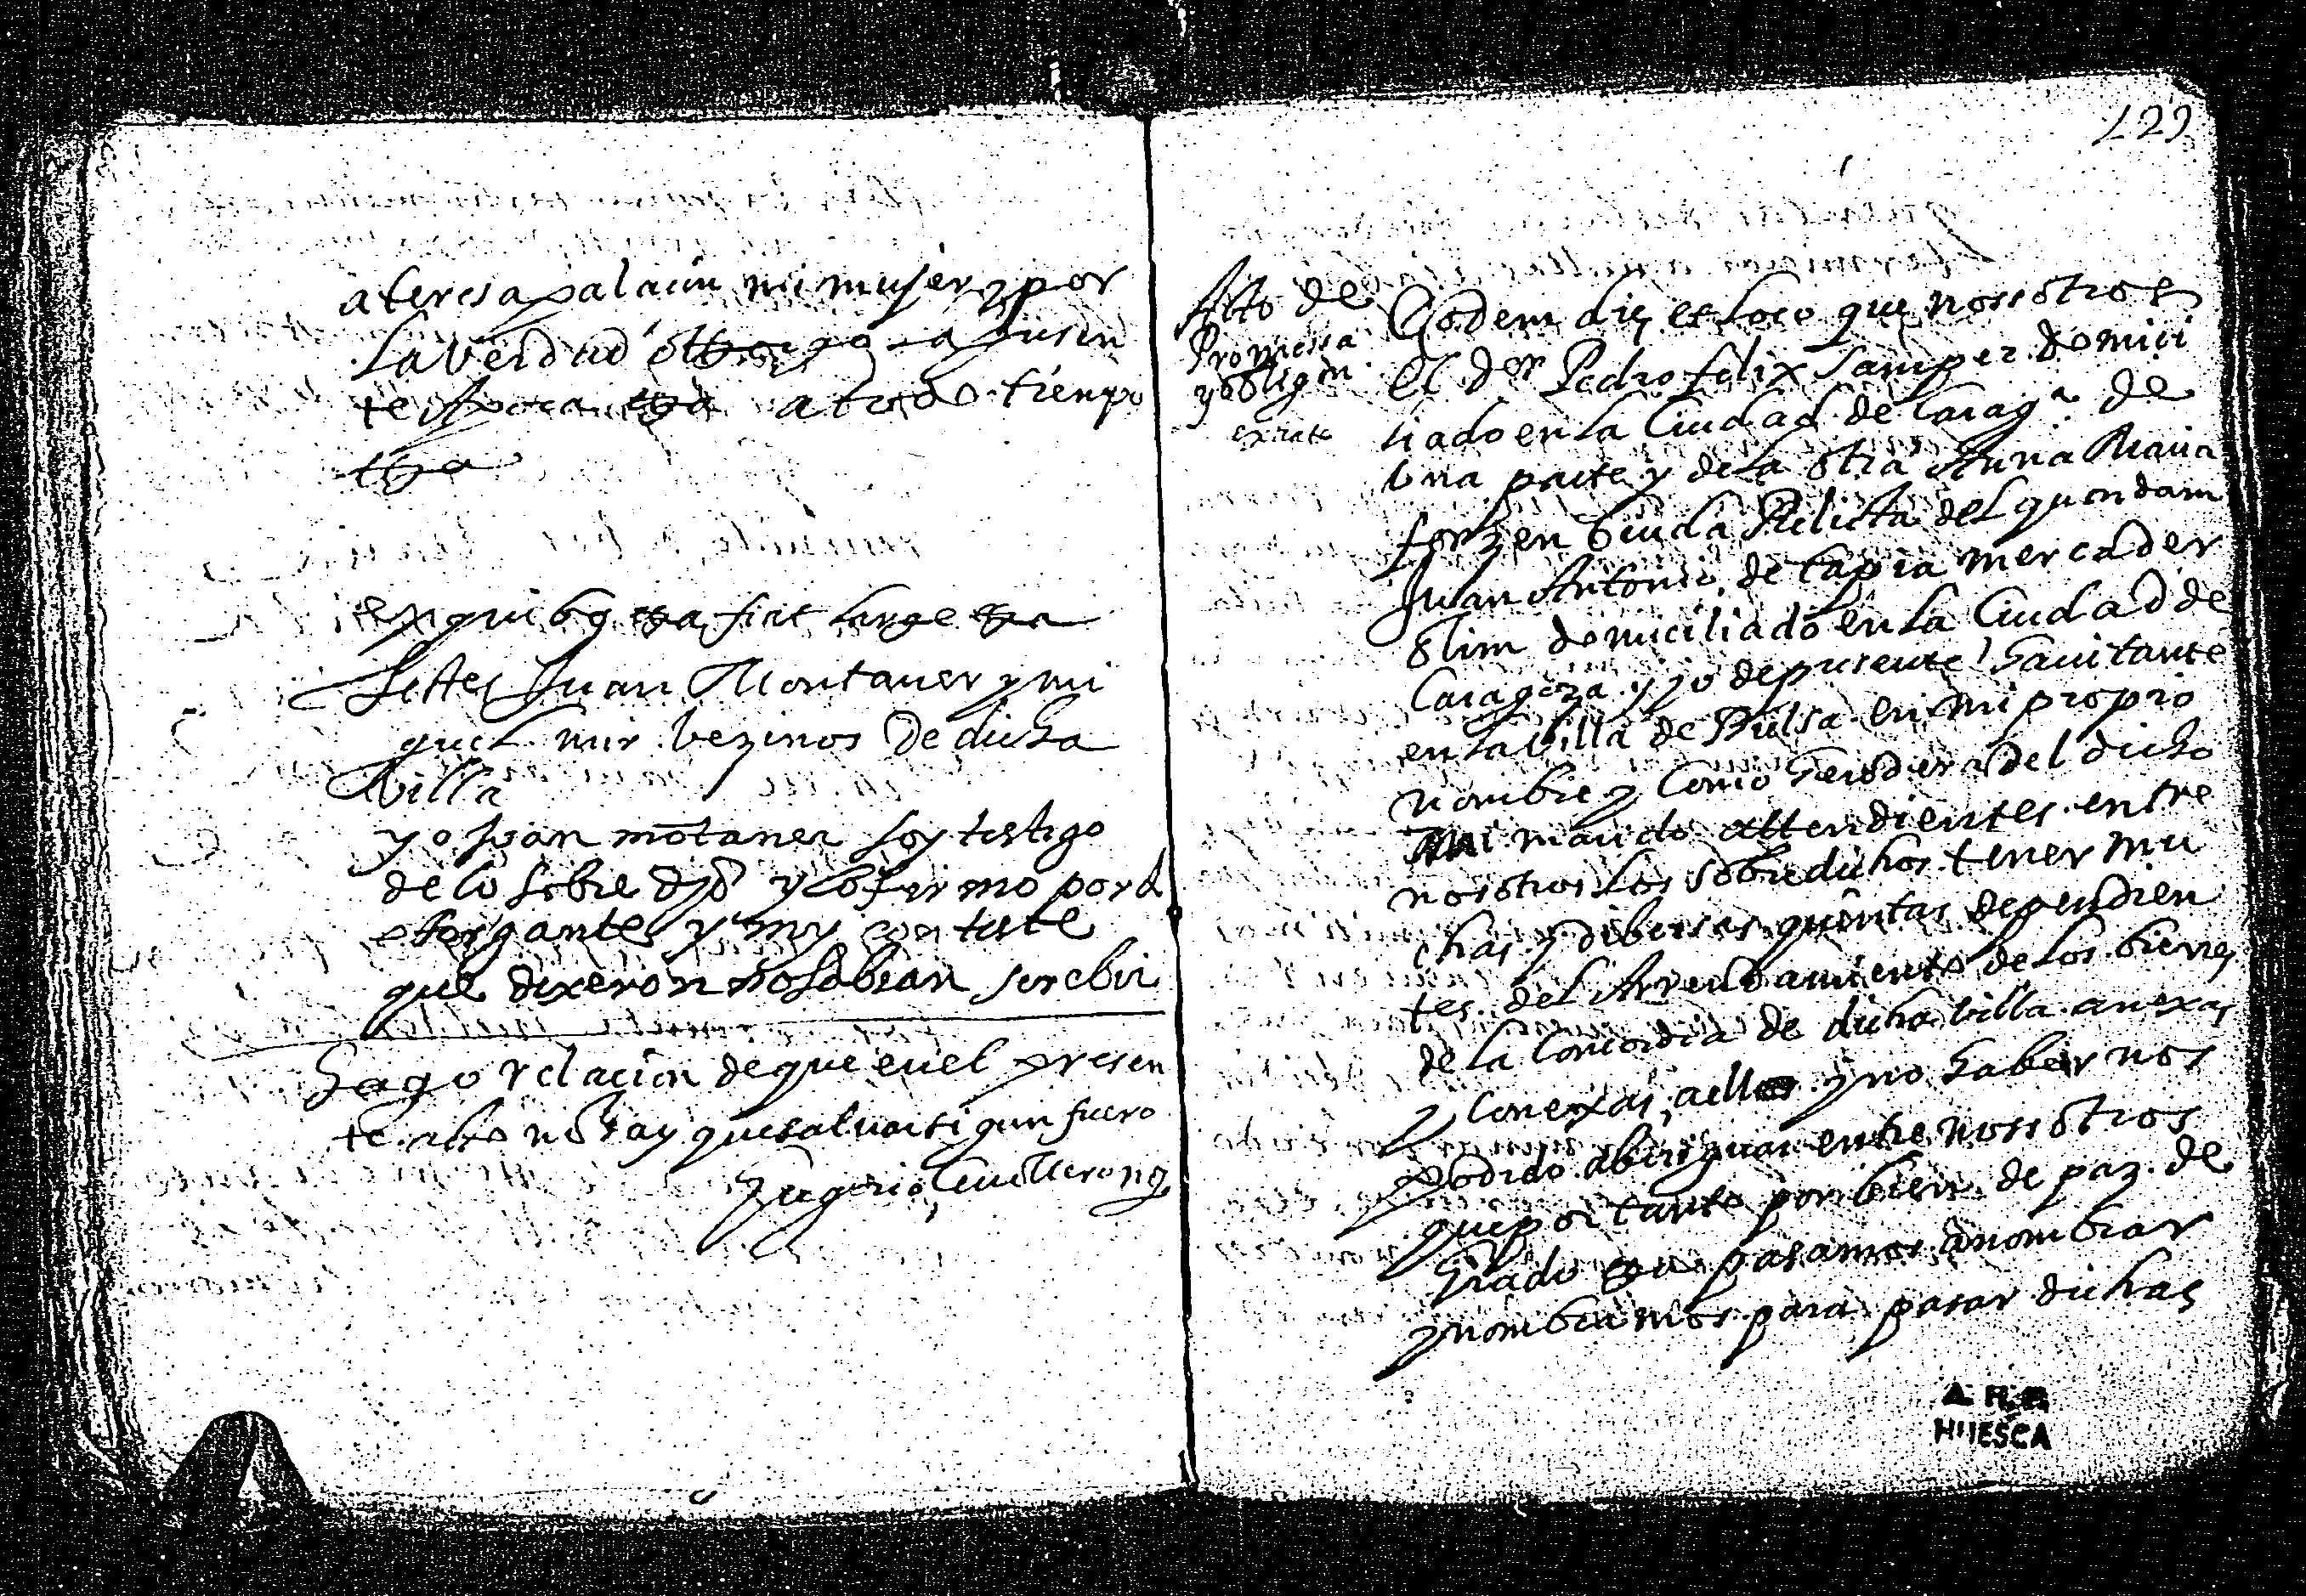 a teresa palacin mi mujer y por
la verdad otorgo la presen
te Apoca etca a todo tiempo
etca
ex quibus etca fiat large etca
Testes Juan Montaner y mi
guel mir vezinos de dicha
Villa
yo Juan mõtaner soy testigo
de lo sobre djo y lo firmo por el
otorgante y my con teste
que dixeron no sabian screbir
Hago relacion de que en el presen
te acto no ay que salvar sigun fuero
129
Acto de
Promessa
y obligon
extracto
Eodem die et loco que nossotros
El Dor Pedro felix Samper domici
liado en la Ciudad de Caragª de
vna parte y de la otra Anna Maria
forzen viuda Relicta del quondam
Juan Antonio de Tapia mercader
olim domiciliado en la Ciudad de
Caragoza y jo de presente havitante
en la Villa de en mi propio
nombre y Como heredera del dicho
mi marido attendientes entre
nosotros los sobredichos tener mu
chas y dibersas quentas dependien
tes del Arrendamiento de los bienes
de la Concordia de dicha villa anexas
y Conexas a ellos y no haber nos
podido aberiguar entre nossotros
que por tanto por bien de paz de
grado etca pasamos a nombrar
y nombramos para pasar dichas
A. H. P.
HUESCA